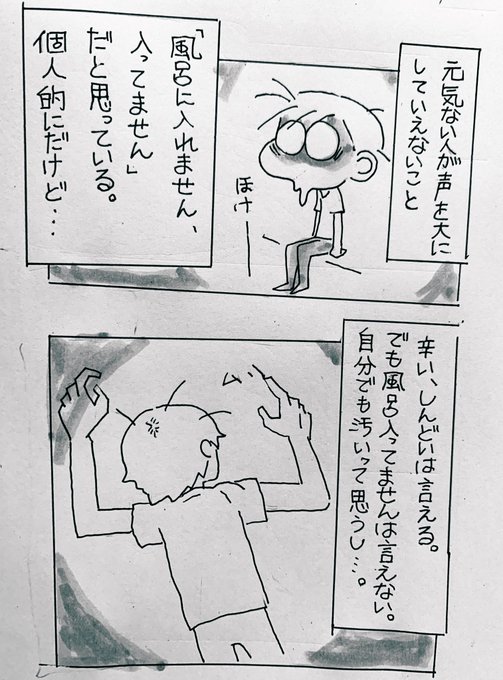 元気ない人が声を大に
していえないこと
ほけー
「風呂に入れません、
入ってません」
だと思っている。
個人的にだけど…
辛い、しんどいは言える。
でも風呂入ってませんは言えない。
自分でも汚いって思うし…。